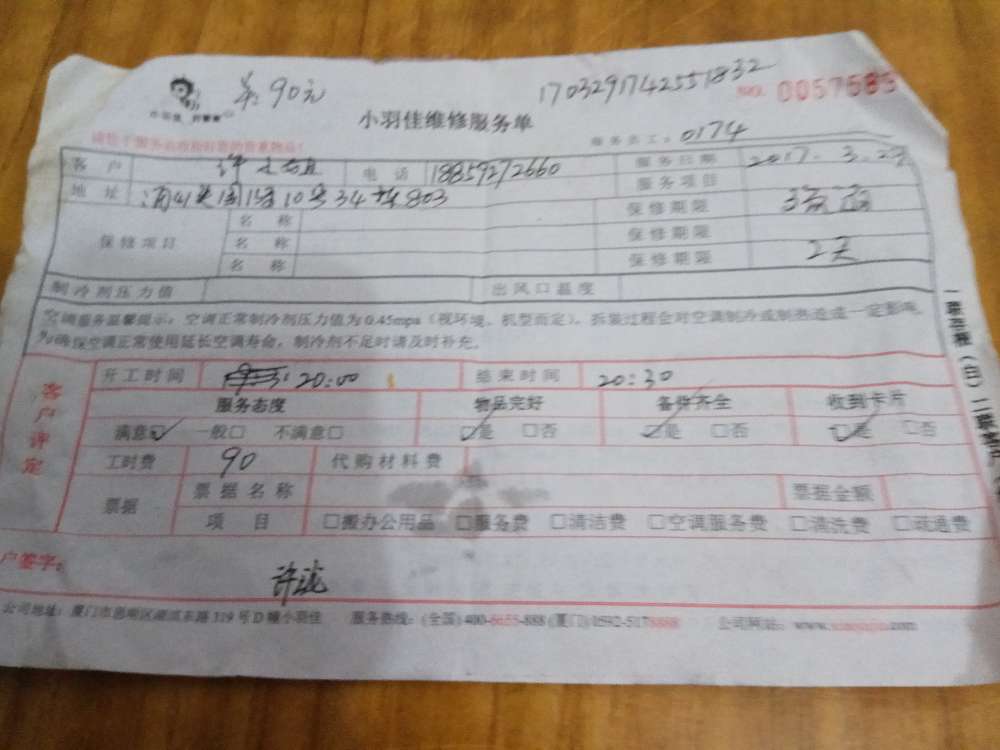 90元
1703291742551832
NO. 0057685
小羽佳维修服务单
服务员工：0174
客户 许 电话 18859272660 服务日期 2017.3.29
地址 10号34栋803 服务项目 疏通
保修项目 名称 保修期限
名称 保修期限
名称 保修期限 2天
制冷剂压力值 出风口温度
空调服务温馨提示：空调正常制冷剂压力值为0.45mpa（视环境、机型而定），拆装过程会对空调制冷或制热造成一定影响，
为确保空调正常使用延长空调寿命，制冷剂不足时请及时补充。
客户评定
开工时间 20:00 结束时间 20:30
服务态度 物品完好 备件齐全 收到卡片
满意☑ 一般□ 不满意□ ☑是 □否 ☑是 □否 ☑是 □否
工时费 90 代购材料费
票据 票据名称 票据金额
项目 □搬办公用品 □服务费 □清洁费 □空调服务费 □清洗费 □疏通费
户签字：
许
公司地址：厦门市思明区湖滨东路319号D幢小羽佳 服务热线：(全国)400-6655-888 (厦门)0592-5178888 公司网站：www.xiaoyujia.com
一联存根（白）二联